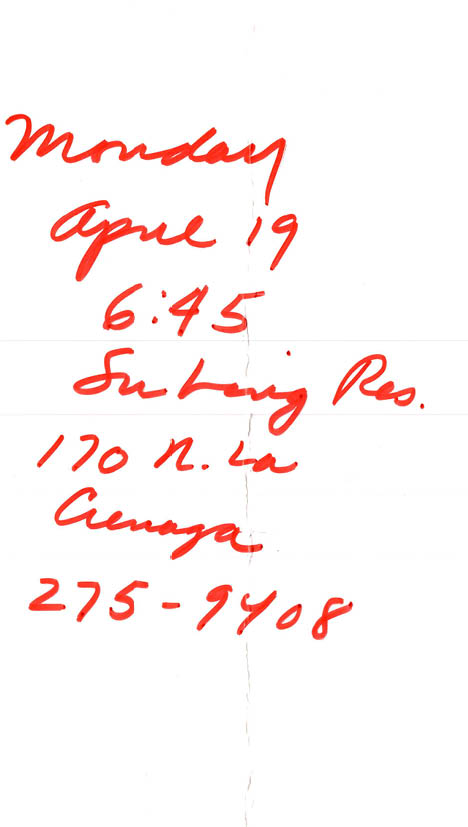 Monday
April 19
6:45
Su Ling Res.
170 N. La
Cienaga
275-9408